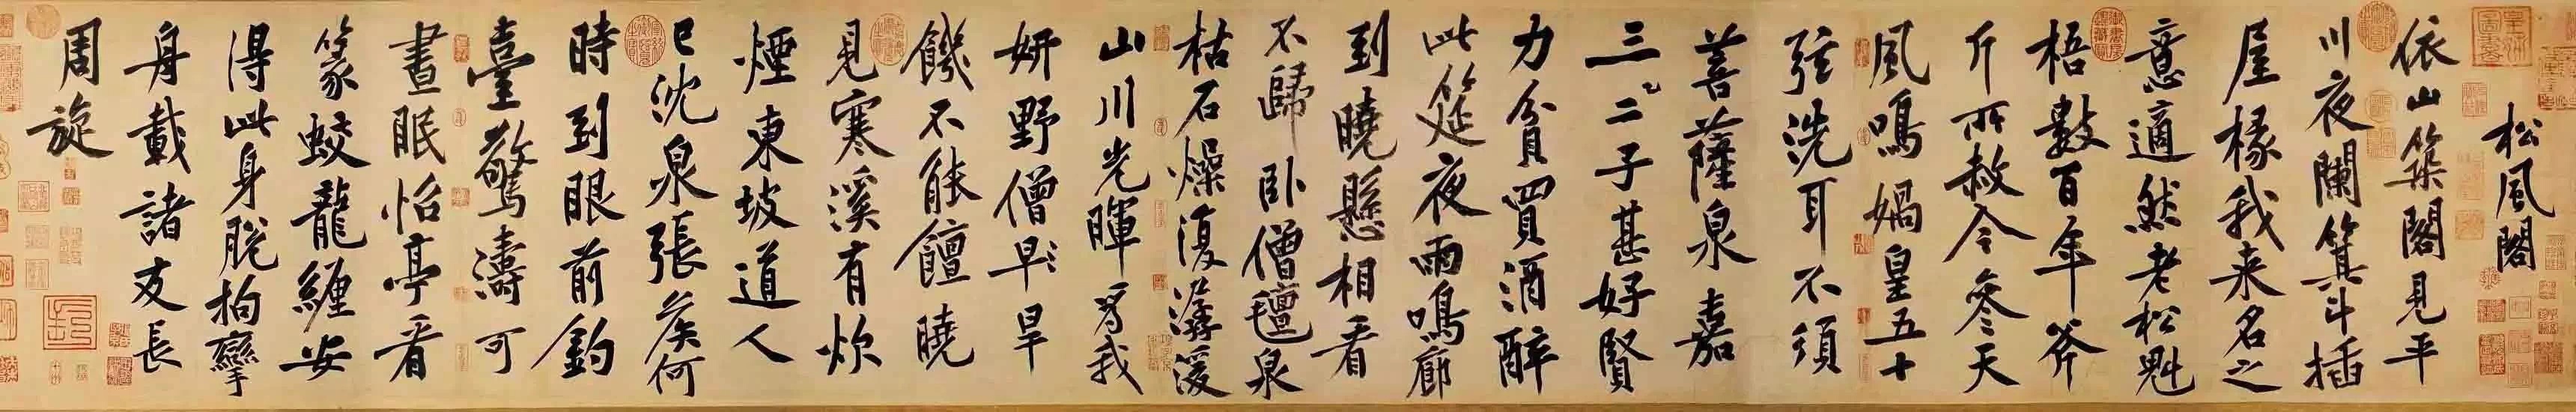 松風閣
依山築閣見平
川夜闌箕斗插
屋椽我来名之
意適然老松魁
梧數百年斧
斤所赦今参天
風鳴媧皇五十
弦洗耳不須
菩薩泉嘉
三二子甚好賢
力貧買酒醉
此筵夜雨鳴廊
到曉懸相看
不歸卧僧氊泉
枯石燥復潺湲
山川光暉為我
妍野僧早旱
饑不能饘曉
見寒溪有炊
煙東坡道人
已沈泉張侯何
時到眼前釣
臺驚濤可
晝眠怡亭看
篆蛟龍纏安
得此身脫拘攣
舟載諸友長
周旋